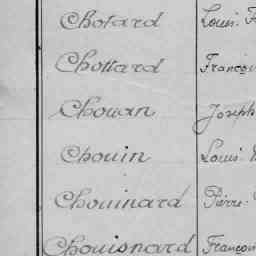 Chotard Louis
Chottard François
Chouan Joseph
Chouin Louis
Chouinard Pierre
Chouisnard François